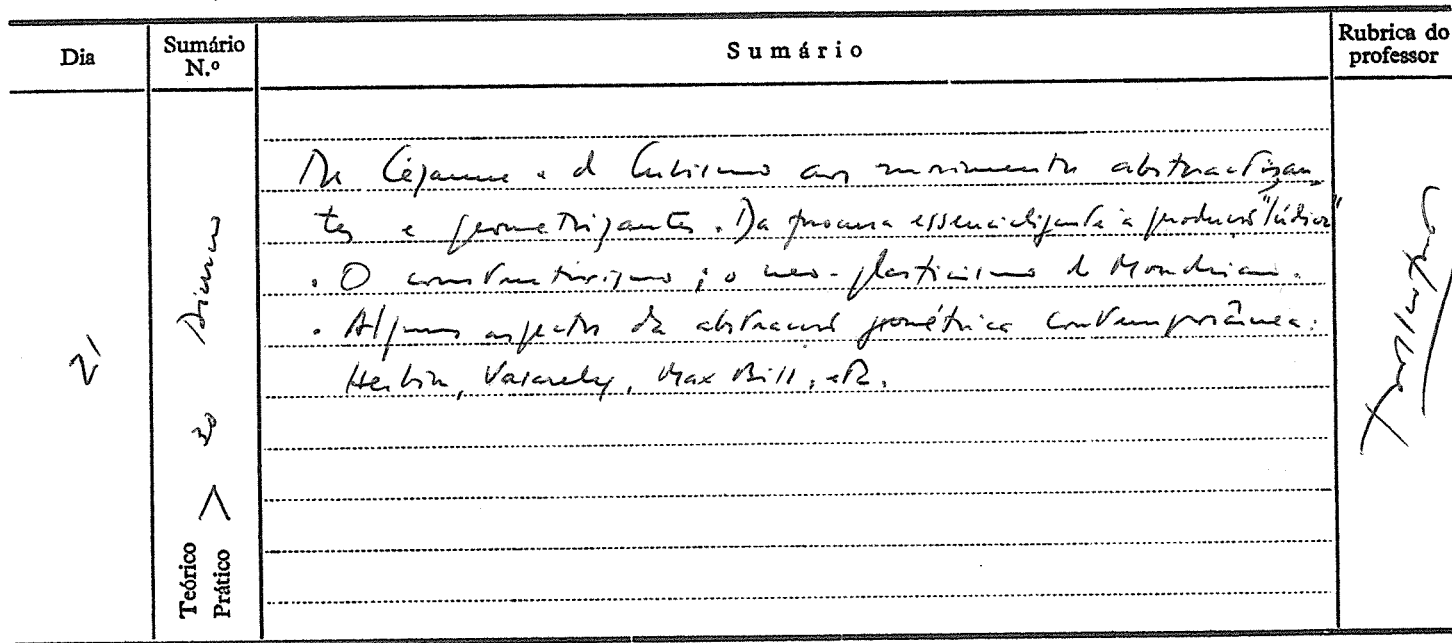 Dia
Sumário N.º
Sumário
Rubrica do professor
21
Teórico
Prático
> 20 Diurno
De Cézanne e d Cubismo aos movimentos abstractizan-
tes e geometrizantes. Da procura essencializante à produção "lúdica"
. O construtivismo; o neo-plasticismo de Mondrian.
. Alguns aspectos da abstracção geométrica contemporânea:
Herbin, Vasarely, Max Bill, etc.